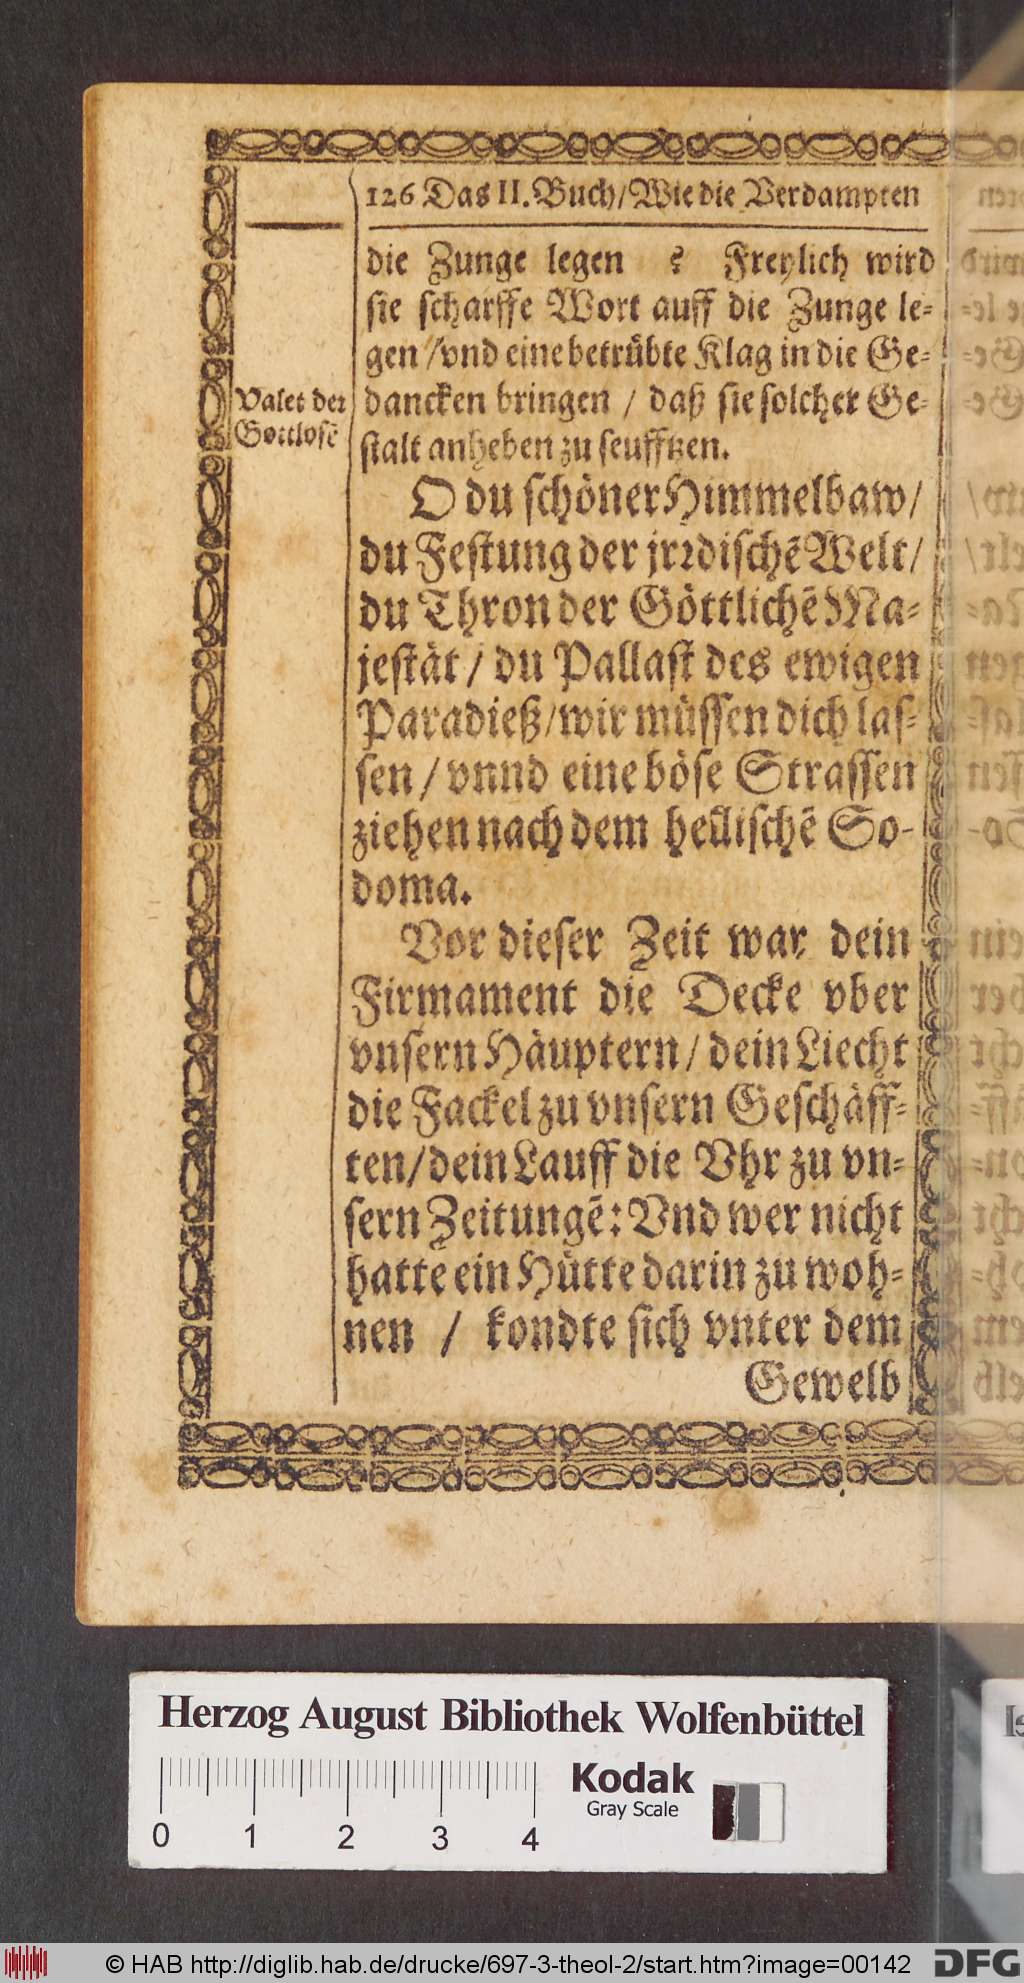 126 Das II. Buch/Wie die Verdampten
die Zunge legen ? Freylich wird
sie scharffe Wort auff die Zunge le-
gen/vnd eine betrübte Klag in die Ge-
Valet der
Gottlosē
dancken bringen / daß sie solcher Ge-
stalt anheben zu seufftzen.
O du schöner Himmelbaw/
du Festung der jrꝛdischē Welt/
du Thron der Göttlichē Ma-
jestät/ du Pallast des ewigen
Paradieß/wir müssen dich las-
sen/ vnnd eine böse Strassen
ziehen nach dem hellischē So-
doma.
Vor dieser Zeit war dein
Firmament die Decke vber
vnsern Häuptern/ dein Liecht
die Fackel zu vnsern Geschäff-
ten/dein Lauff die Vhr zu vn-
sern Zeitungē: Vnd wer nicht
hatte ein Hütte darin zu woh-
nen / kondte sich vnter dem
Gewelb
Herzog August Bibliothek Wolfenbüttel
0 1 2 3 4
Kodak
Gray Scale
© HAB http://diglib.hab.de/drucke/697-3-theol-2/start.htm?image=00142
DFG